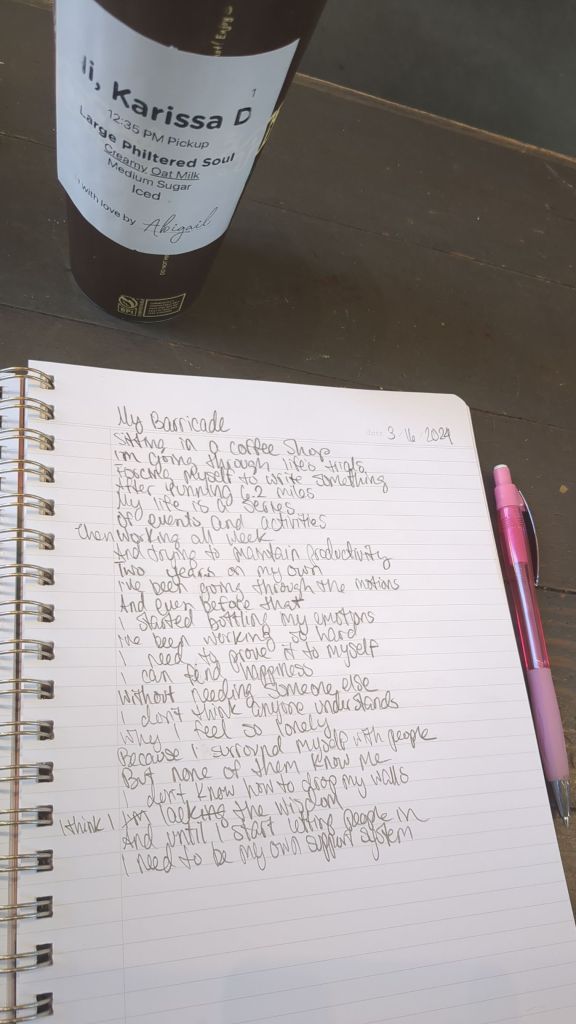 Hi, Karissa D
1
12:35 PM Pickup
Large Philtered Soul
Creamy Oat Milk
Medium Sugar
Iced
with love by Abigail
Enjoy
BPI
My Barricade
3/16/2024
Sitting in a coffee shop
I'm going through life's trials
Forcing myself to write something
After running 6.2 miles
My life is a series
Of events and activities
Then working all week
And trying to maintain productivity
Two years on my own
I've been going through the motions
And even before that
I started bottling my emotions
I've been working so hard
I need to prove it to myself
I can find happiness
Without needing someone else
I don't think anyone understands
Why I feel so lonely
Because I surround myself with people
But none of them know me
I don't know how to drop my walls
I think I I'm lacking the wisdom
And until I start letting people in
I need to be my own support system